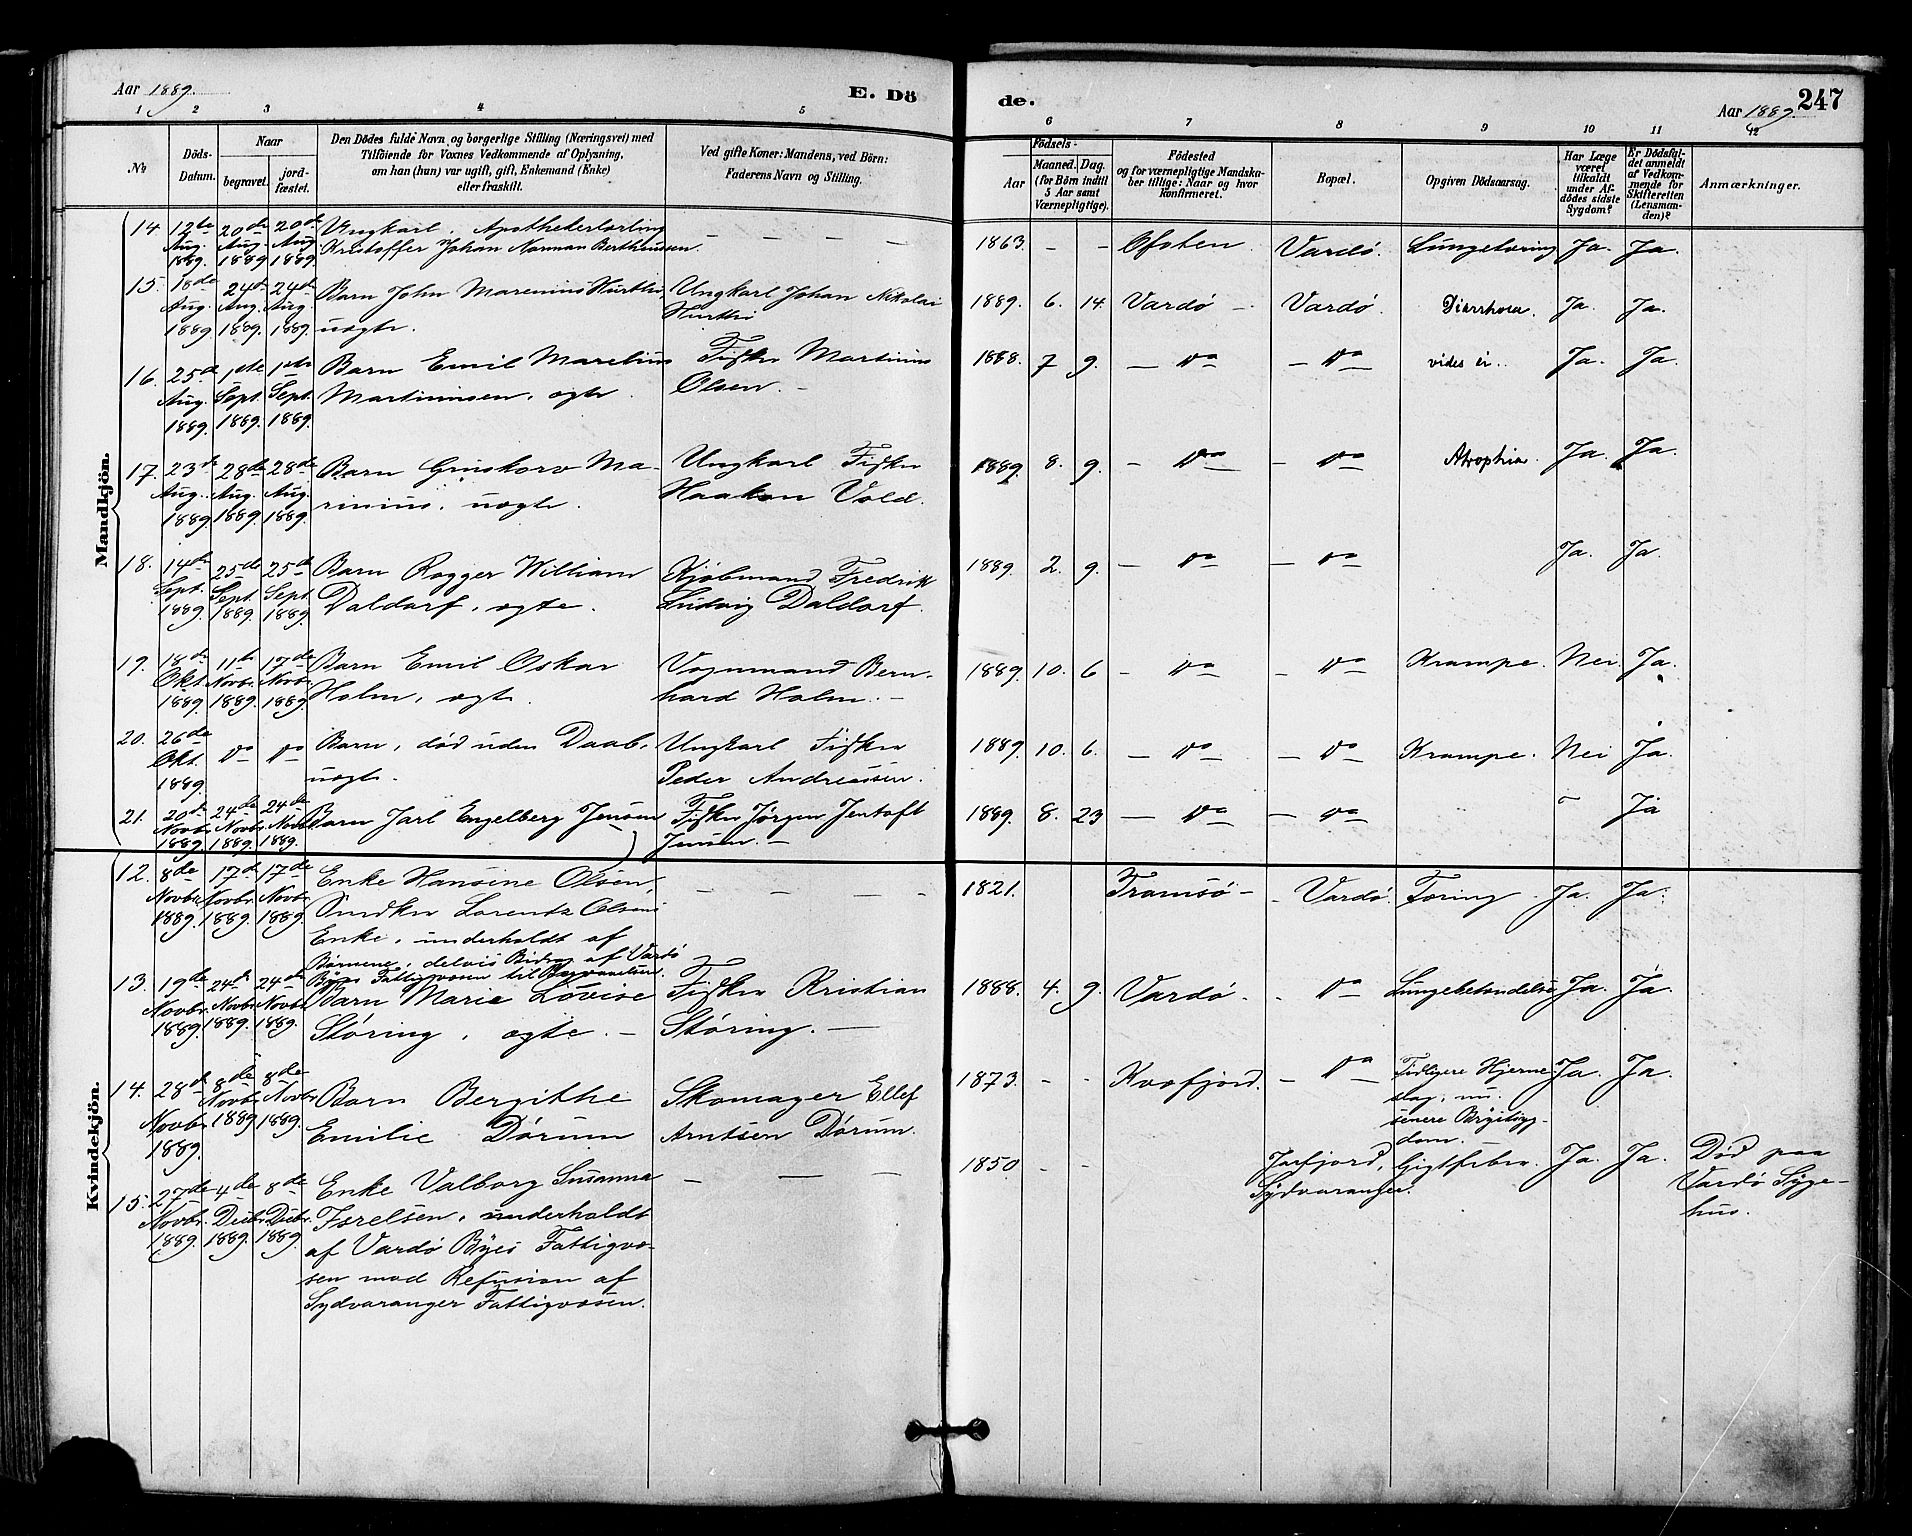 Aar 1889. E. Dö de. Aar 1889. 247
1 2 3 4 5 6 7 8 9 10 11 12
No. Döds-Datum. Naar begravet. jord-fæstet. Den Dödes fulde Navn og borgerlige Stilling (Næringsvei) med Tilföiende for Voxnes Vedkommende af Oplysning, om han (hun) var ugift, gift, Enkemand (Enke) eller fraskilt. Ved gifte Koner: Mandens, ved Börn: Faderens Navn og Stilling. Födsels- Aar Maaned. Dag. (for Börn indtil 5 Aar samt Værnepligtige). Födested og for værnepligtige Mandskaber tillige: Naar og hvor konfirmeret. Bopæl. Opgiven Dödsaarsag. Har Læge været tilkaldt under Afdödes sidste Sygdom? Er Dödsfaldet anmeldt af Vedkommende for Skifteretten (Lensmanden)? Anmærkninger.
Mandkjön.
14. 12te Aug. 1889. 20de Aug. 1889 20de Aug. 1889. Ungkarl, Apothekerlærling Kristoffer Johan Norman Bertheussen. — — — — 1863. - - Ofoten. Vardö. Lungetæring Ja. Ja.
15. 18de Aug. 1889 24de Aug. 1889. 24de Aug. 1889. Barn John Marenius Hurthi, uægte. Ungkarl Johan Nikolai Hurthi 1889. 6. 14. Vardö — Vardö. Diarrhoea. Ja. Ja.
16. 25de Aug. 1889. 1ste Sept. 1889. 1ste Sept. 1889. Barn Emil Marelius Martinussen, ægte. Fisker Martinus Olsen. — 1888. 7 9. — Do — Do vides ei. Ja. Ja.
17. 23de Aug. 1889. 28de Aug. 1889. 28de Aug. 1889. Barn Ginskorv Marinius, uægte. Ungkarl Fisker Haakon Vold. 1889. 8. 9. — Do — Do Atrophia. Ja. Ja.
18. 14de Sept. 1889. 25de Sept. 1889. 25de Sept. 1889. Barn Rogger William Daldorf, ægte. Kjöbmand Fredrik Ludvig Daldorf. 1889. 2. 9. — Do — Do Ja. Ja.
19. 18de Okt. 1889. 11te Novbr. 1889. 17de Novbr. 1889. Barn Emil Oskar Holm, ægte. Vognmand Bernhard Holm. — 1889. 10. 6 — Do — Do Krampe. Nei Ja.
20. 26de Okt. 1889. Do Do Barn, død uden Daab, uægte. Ungkarl Fisker Peder Andreassen. 1889. 10. 6. — Do — Do Krampe. Nei Ja.
21. 20de Novbr. 1889. 24de Novbr. 1889. 24de Novbr. 1889. Barn Jarl Engelberg Jensen Fisker Jørgen Jentoft Jensen. — 1889. 8. 23 — Do — Do - Ja
Kvindekjön.
12. 8de Novbr. 1889. 17de Novbr. 1889. 17de Novbr. 1889. Enke Hansine Olsen, Snedker Lorentz Olsens Enke, underholdt af Børnene, delvis Bidrag af Vardö Byes Fattigvæsen til Begravelsen. — — — — 1821. Tromsö — - Vardö. Tæring. Ja. Ja.
13. 19de Novbr. 1889. 24de Novbr. 1889. 24de Novbr. 1889. Barn Marie Lovise Störing, ægte. — Fisker Kristian Störing. — 1888. 4. 9. Vardö. - Do Lungebetændelse Ja. Ja.
14. 28de Novbr. 1889. 8de Novbr. 1889 8de Novbr. 1889. Barn Bergithe Emilie Dörum Skomager Ellef Arntsen Dörum. 1873. - - Kvæfjord. — Do Tidligere Hjerneslag, nu senere Brystsygdom. Ja. Ja.
15. 27de Novbr. 1889. 4de Decbr. 1889. 8de Decbr. 1889. Enke Valborg Susanna Isrelsen, underholdt af Vardö Byes Fattigvæsen mod Refusion af Sydvaranger Fattigvæsen. — — — 1850. - - Jarfjord, Sydvaranger. Gigtfeber. Ja. Ja. Død paa Vardö Sygehus.